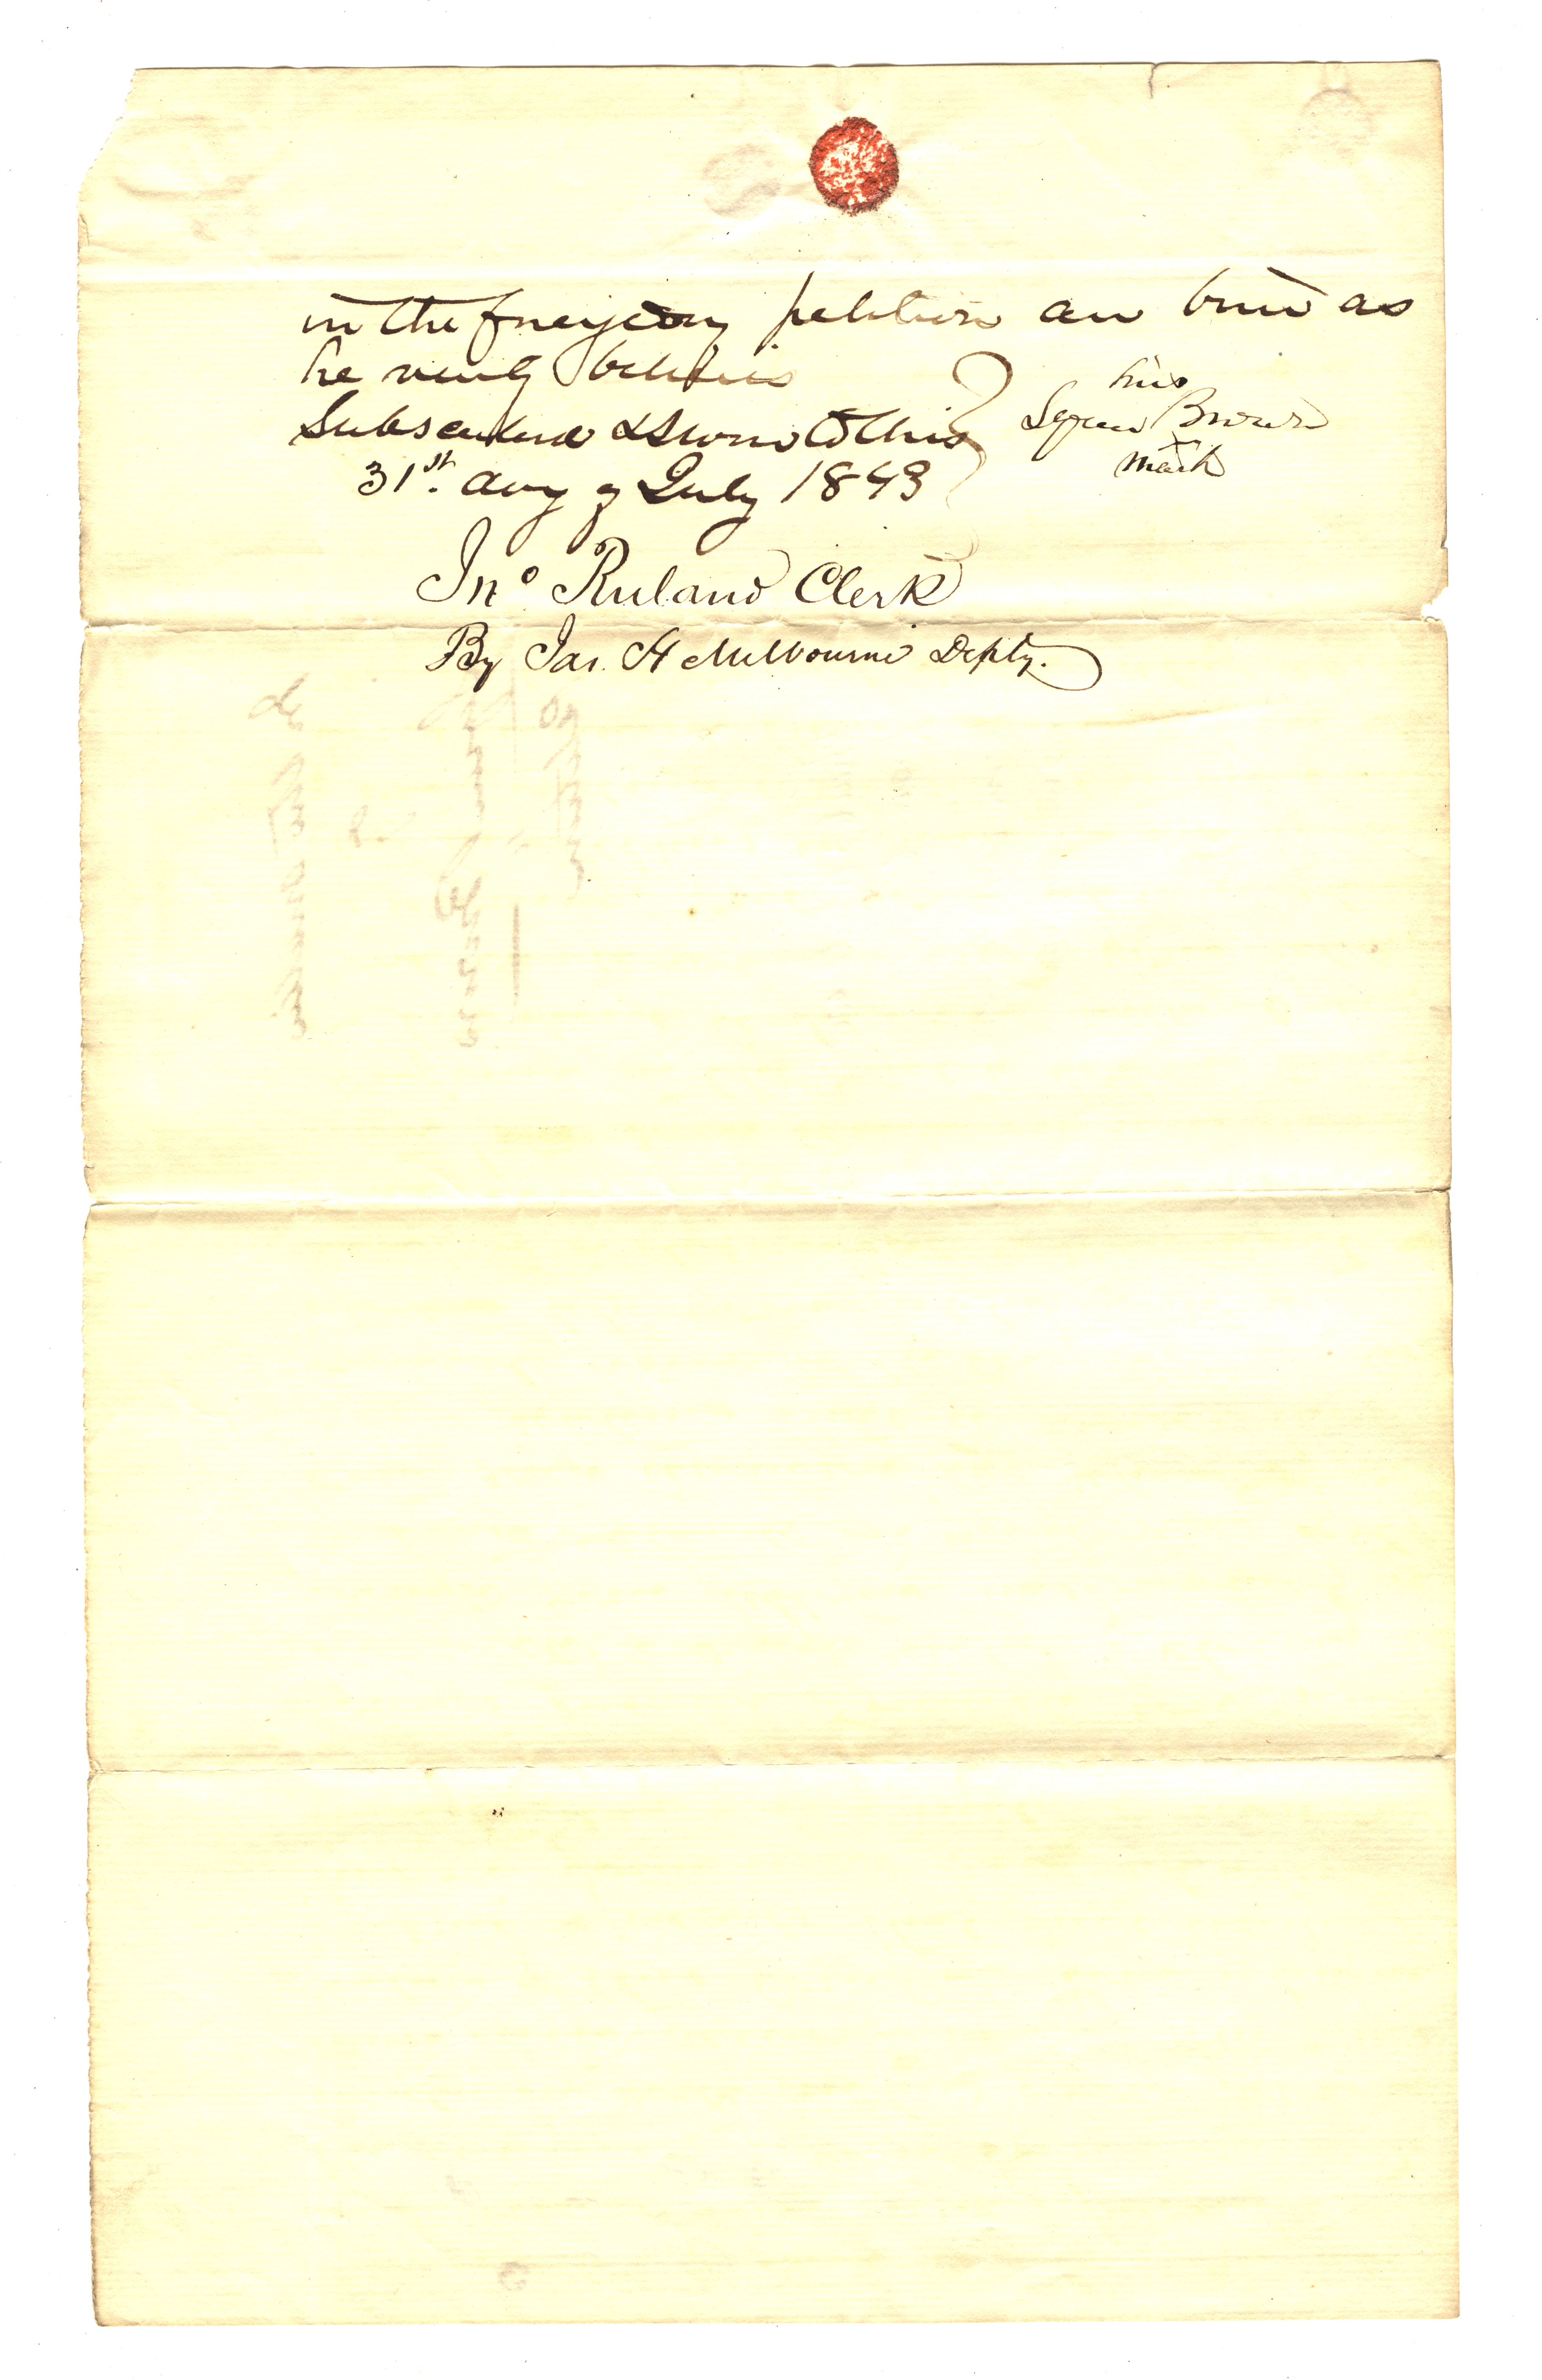 in the foregoing petition are true as
he verily believes
Subscribed & Sworn to this
31st. day of July 1843
his
Squire Brown
X
mark
Jno Ruland Clerk
By Jas. H Melbourne Depty.